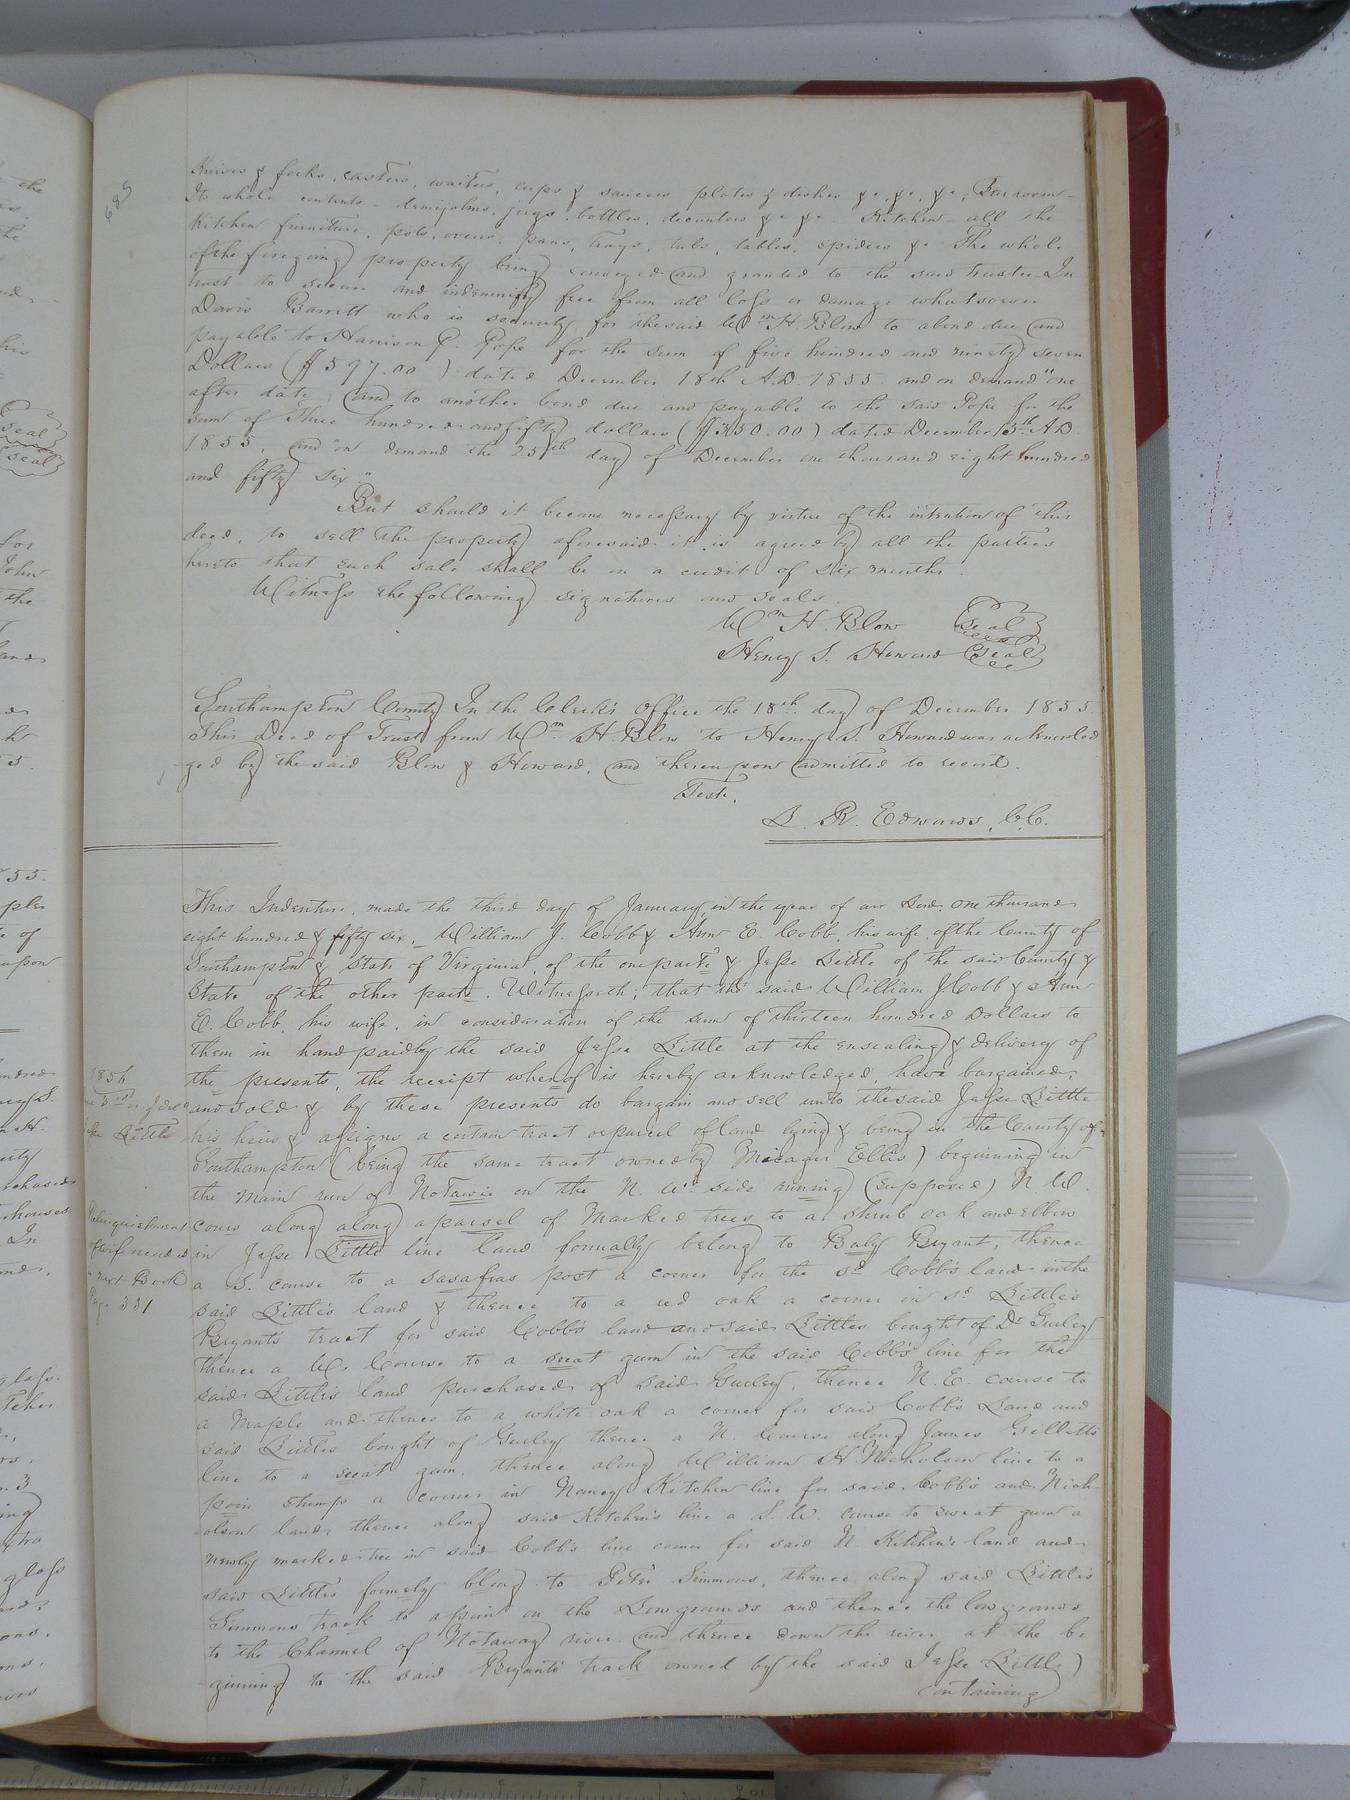 685
Knives & forks, casters, waiters, cups & saucers plates & dishes &c, &c, &c, Barroom -
Its whole contents - demijohns, jugs, bottles, decanters &c &c Kitchen - all the
Kitchen furniture, pots, ovens, pans, trays, tubs, tables, spiders &c The whole
of the foregoing property being conveyed and granted to the said trustee In
trust to secure and indemnify free from all loss or damage whatsoever
Davis Barrett who is security for the said Wm H. Blow to a bond due and
payable to Harrison P. Pope for the sum of five hundred and ninety seven
Dollars ($597.00) dated December 18th A.D. 1855 and on demand "one
after date, and to another bond due and payable to the said Pope for the
sum of Three hundred and fifty dollars ($350.00) dated December 15th A.D.
1855, and "on demand the 25th day of December one thousand eight hundred
and fifty six."
But should it become necessary by virtue of the intention of this
deed, to sell the property aforesaid it is agreed by all the parties
hereto that such sale shall be on a credit of six months.
Witness the following signatures and seals
Wm H. Blow Seal
Henry S. Howard Seal
Southampton County In the Clerk's Office the 18th day of December 1855
This Deed of Trust from Wm H. Blow to Henry S. Howard was acknowled
ged by the said Blow & Howard, and thereupon admitted to record.
Teste,
L. R. Edwards, C.C.
This Indenture, made the third day of January, in the year of our Lord, one thousand
eight hundred & fifty six, William J. Cobb & Ann E. Cobb, his wife, of the County of
Southampton & State of Virginia, of the one parte & Jesse Little of the said County &
State of the other parte. Witnesseth; that the said William J. Cobb & Ann
E. Cobb, his wife, in consideration of the sum of thirteen hundred Dollars to
them in hand paid by the said Jesse Little at the ensealing & delivery of
the presents, the receipt whenof is hereby acknowledged, have bargained,
and sold & by these presents do bargain and sell unto the said Jesse Little
his heirs & assigns a certain tract or parcel of land lying & being in the County of
Southampton (being the same tract owned by Micager Ellis) beginning in
the main run of Notawic on the N. W. side running (supposed) N. W.
cours along along a parsel of Marked trees to a shrub oak and elbow
in Jesse Little line land formally belong to Baly Bryant, thence
a S. course to a sasafras post a corner for the sd Cobb's land in the
said Little's land & thence to a red oak a corner in sd Little's
Bryants tract for said Cobb's land and said Littles bought of Dr Gurley
thence a W. Course to a sweat gum in the said Cobb's line for the
said Little's land purchased of said Gurley, thence N. E. course to
a Maple and thence to a white oak a corner for said Cobb's Land and
said Littles bought of Gurley thence a N. Course along James Gilletts
line to a sweat gum, thence along William H. Nicholson line to a
poin stump a corner in Nancy Kitchen line for said Cobb's and Nich-
olson land, thence along said Kitchen's line a S. W. course to sweat gum a
newly marked tree in said Cobb's line corner for said N. Kitchen's land and
said Littles formely blong to Peter Simmons, thence along said Little's
Simmons track to a point on the Low grounds and thence the low grounds
to the Channel of Notaway river and thence down the river at the be
ginning to the said Bryants' track owned by the said Jesse Little)
containing
1856
Little
Relinquishment
of wife recorded
in next Book
Page 331